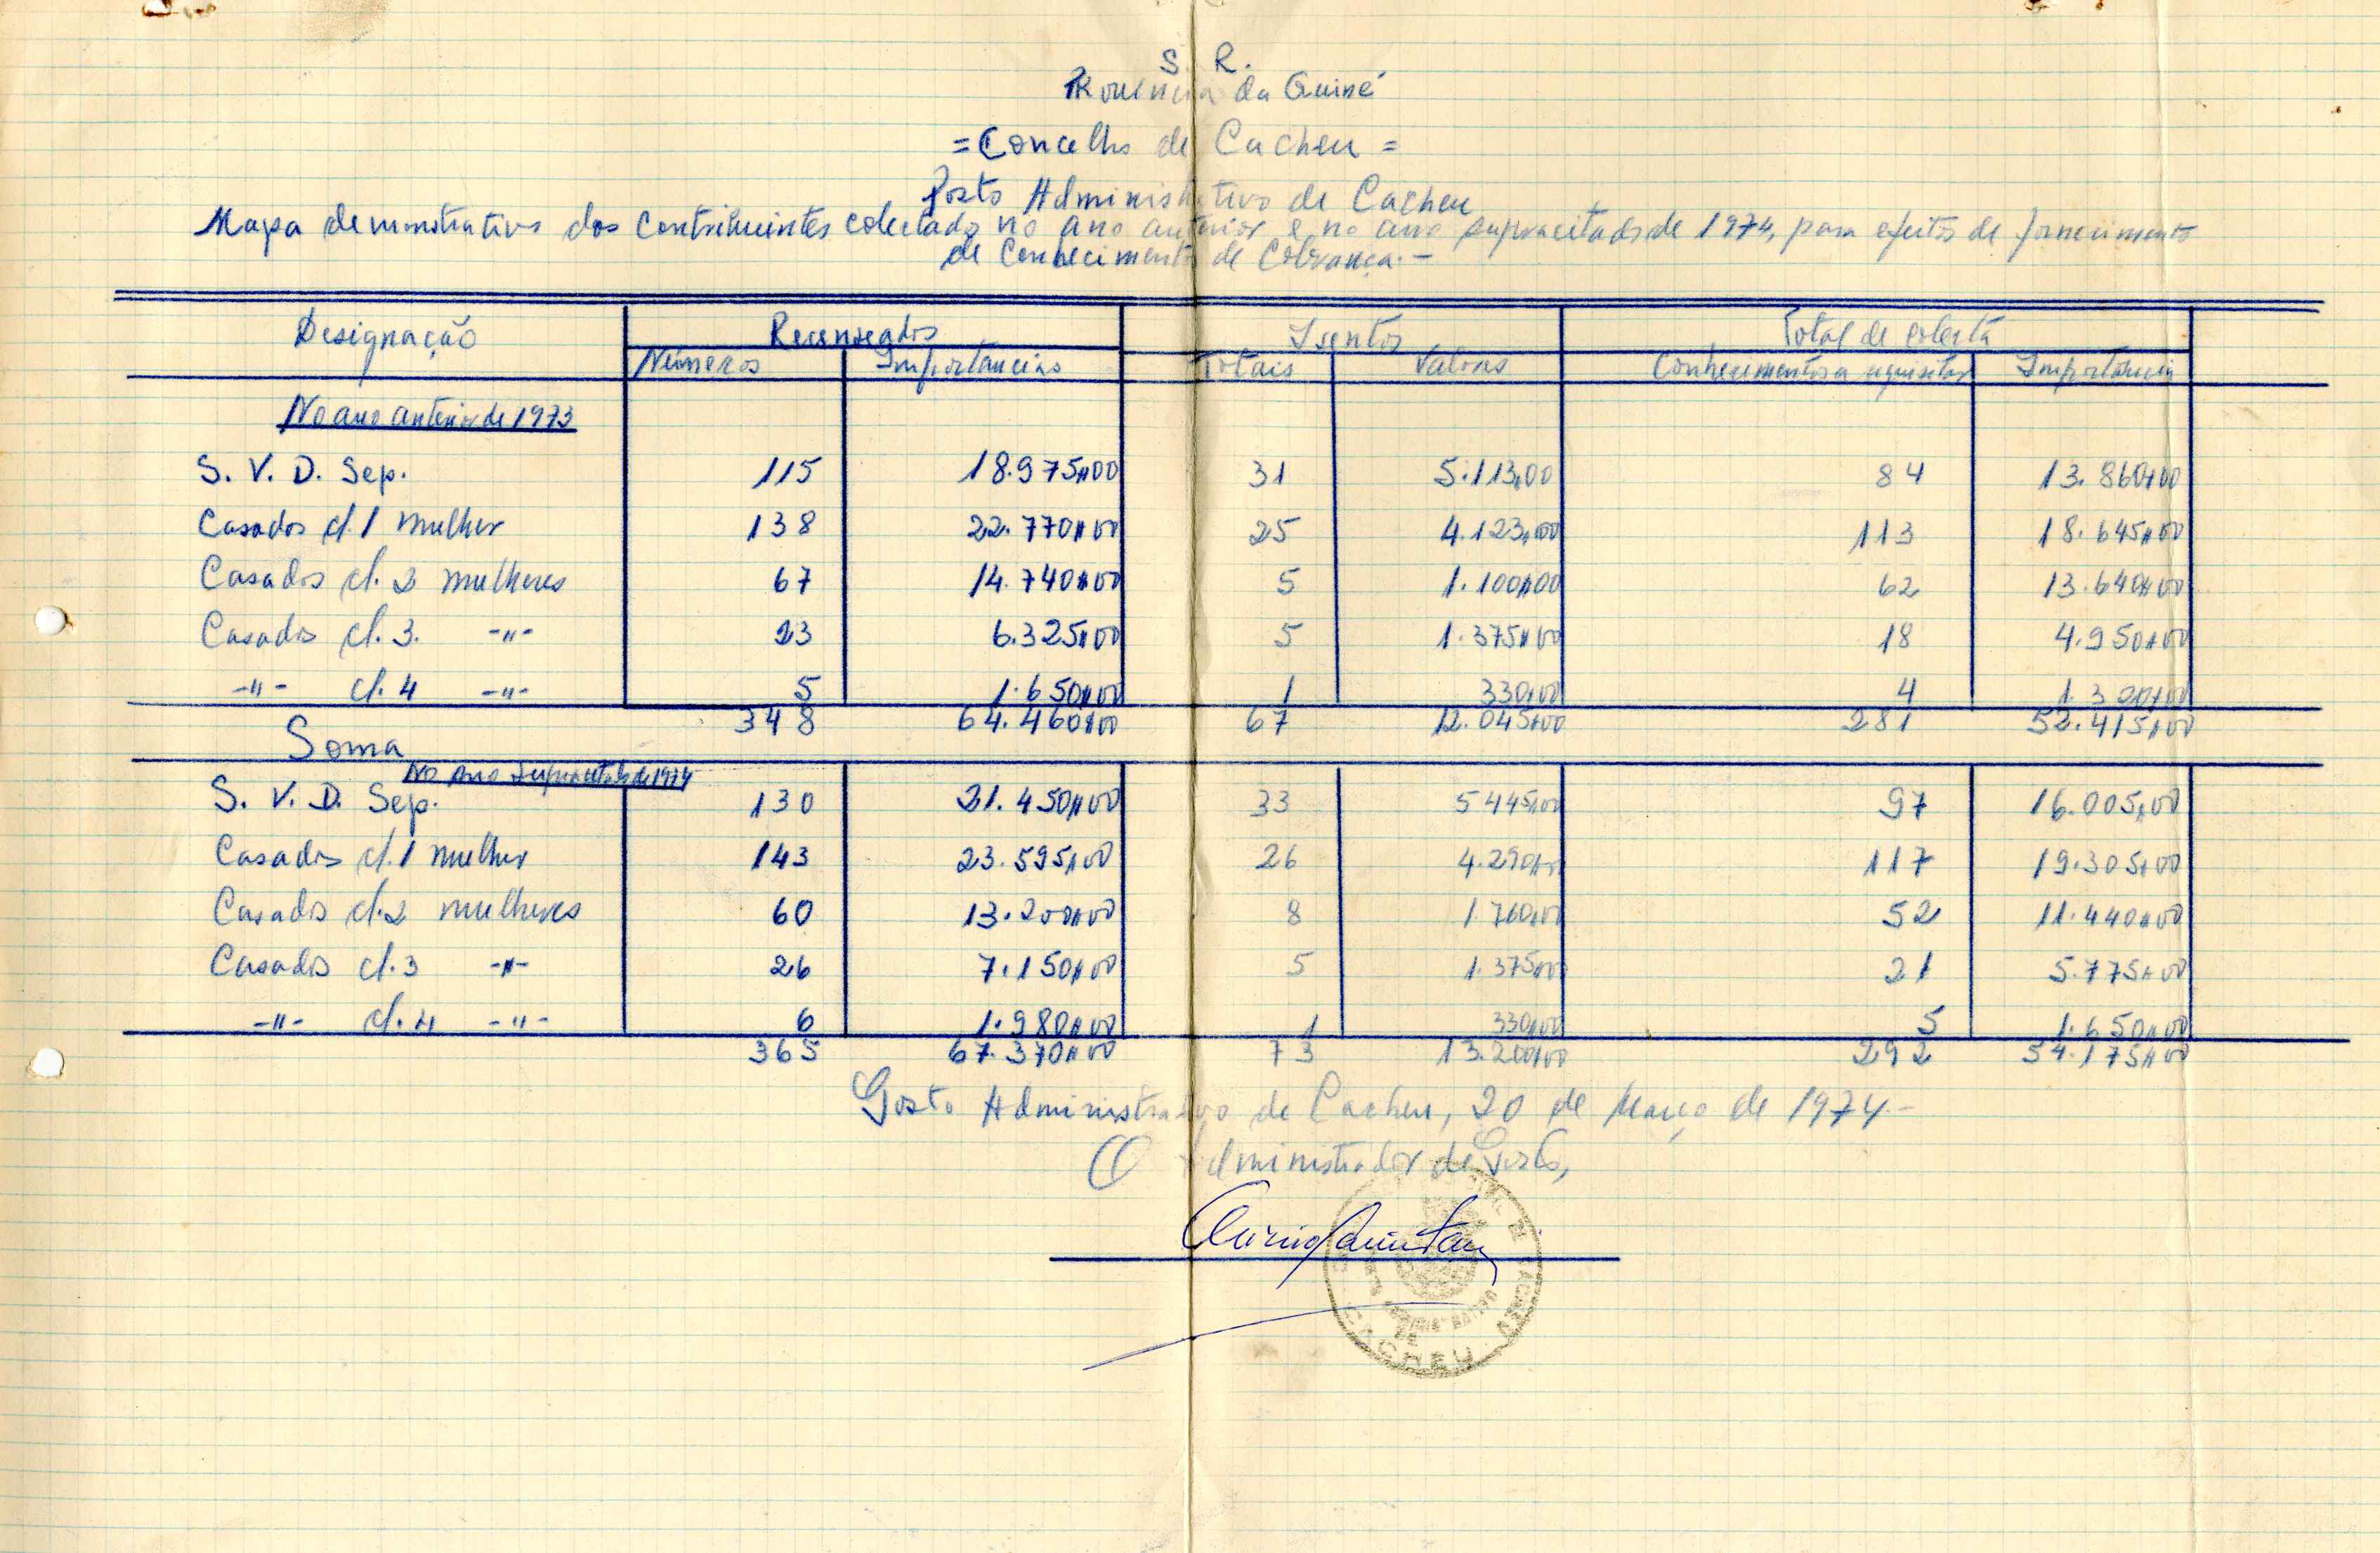 S. R.
Província da Guiné
=Concelho de Cacheu=
Posto Administrativo de Cacheu
Mapa demonstrativo dos Contribuintes colectado no ano anterior e no ano supracitado de 1974, para efeitos de fornecimento
de Conhecimento de Cobrança.-
Designação Recenseados Isentos Total de colecta
Números Importâncias Totais Valores Conhecimentos a requisitar Importância
No ano anterior de 1973
S. V. D. Sep. 115 18.975$00 31 5.113,00 84 13.860$00
Casados c/.1 mulher 138 22.770$00 25 4.123,00 113 18.645$00
Casados c/.2 mulheres 67 14.740$00 5 1.100$00 62 13.640$00
Casados c/.3. -"- 23 6.325$00 5 1.375$00 18 4.950$00
-"- c/.4 -"- 5 1.650$00 1 330$00 4 1.320$00
Soma 348 64.460$00 67 12.045$00 281 52.415$00
No Ano Supracitado de 1974
S. V. D. Sep. 130 21.450$00 33 5445$00 97 16.005$00
Casados c/.1 mulher 143 23.595$00 26 4.290$00 117 19.305$00
Casados c/.2 mulheres 60 13.200$00 8 1.760$00 52 11.440$00
Casados c/.3 -"- 26 7.150$00 5 1.375$00 21 5.775$00
-"- c/.4 -"- 6 1.980$00 1 330$00 5 1.650$00
365 67.370$00 73 13.200$00 292 54.175$00
Posto Administrativo de Cacheu, 20 de Março de 1974.-
O Administrador de Posto,
CACHEU